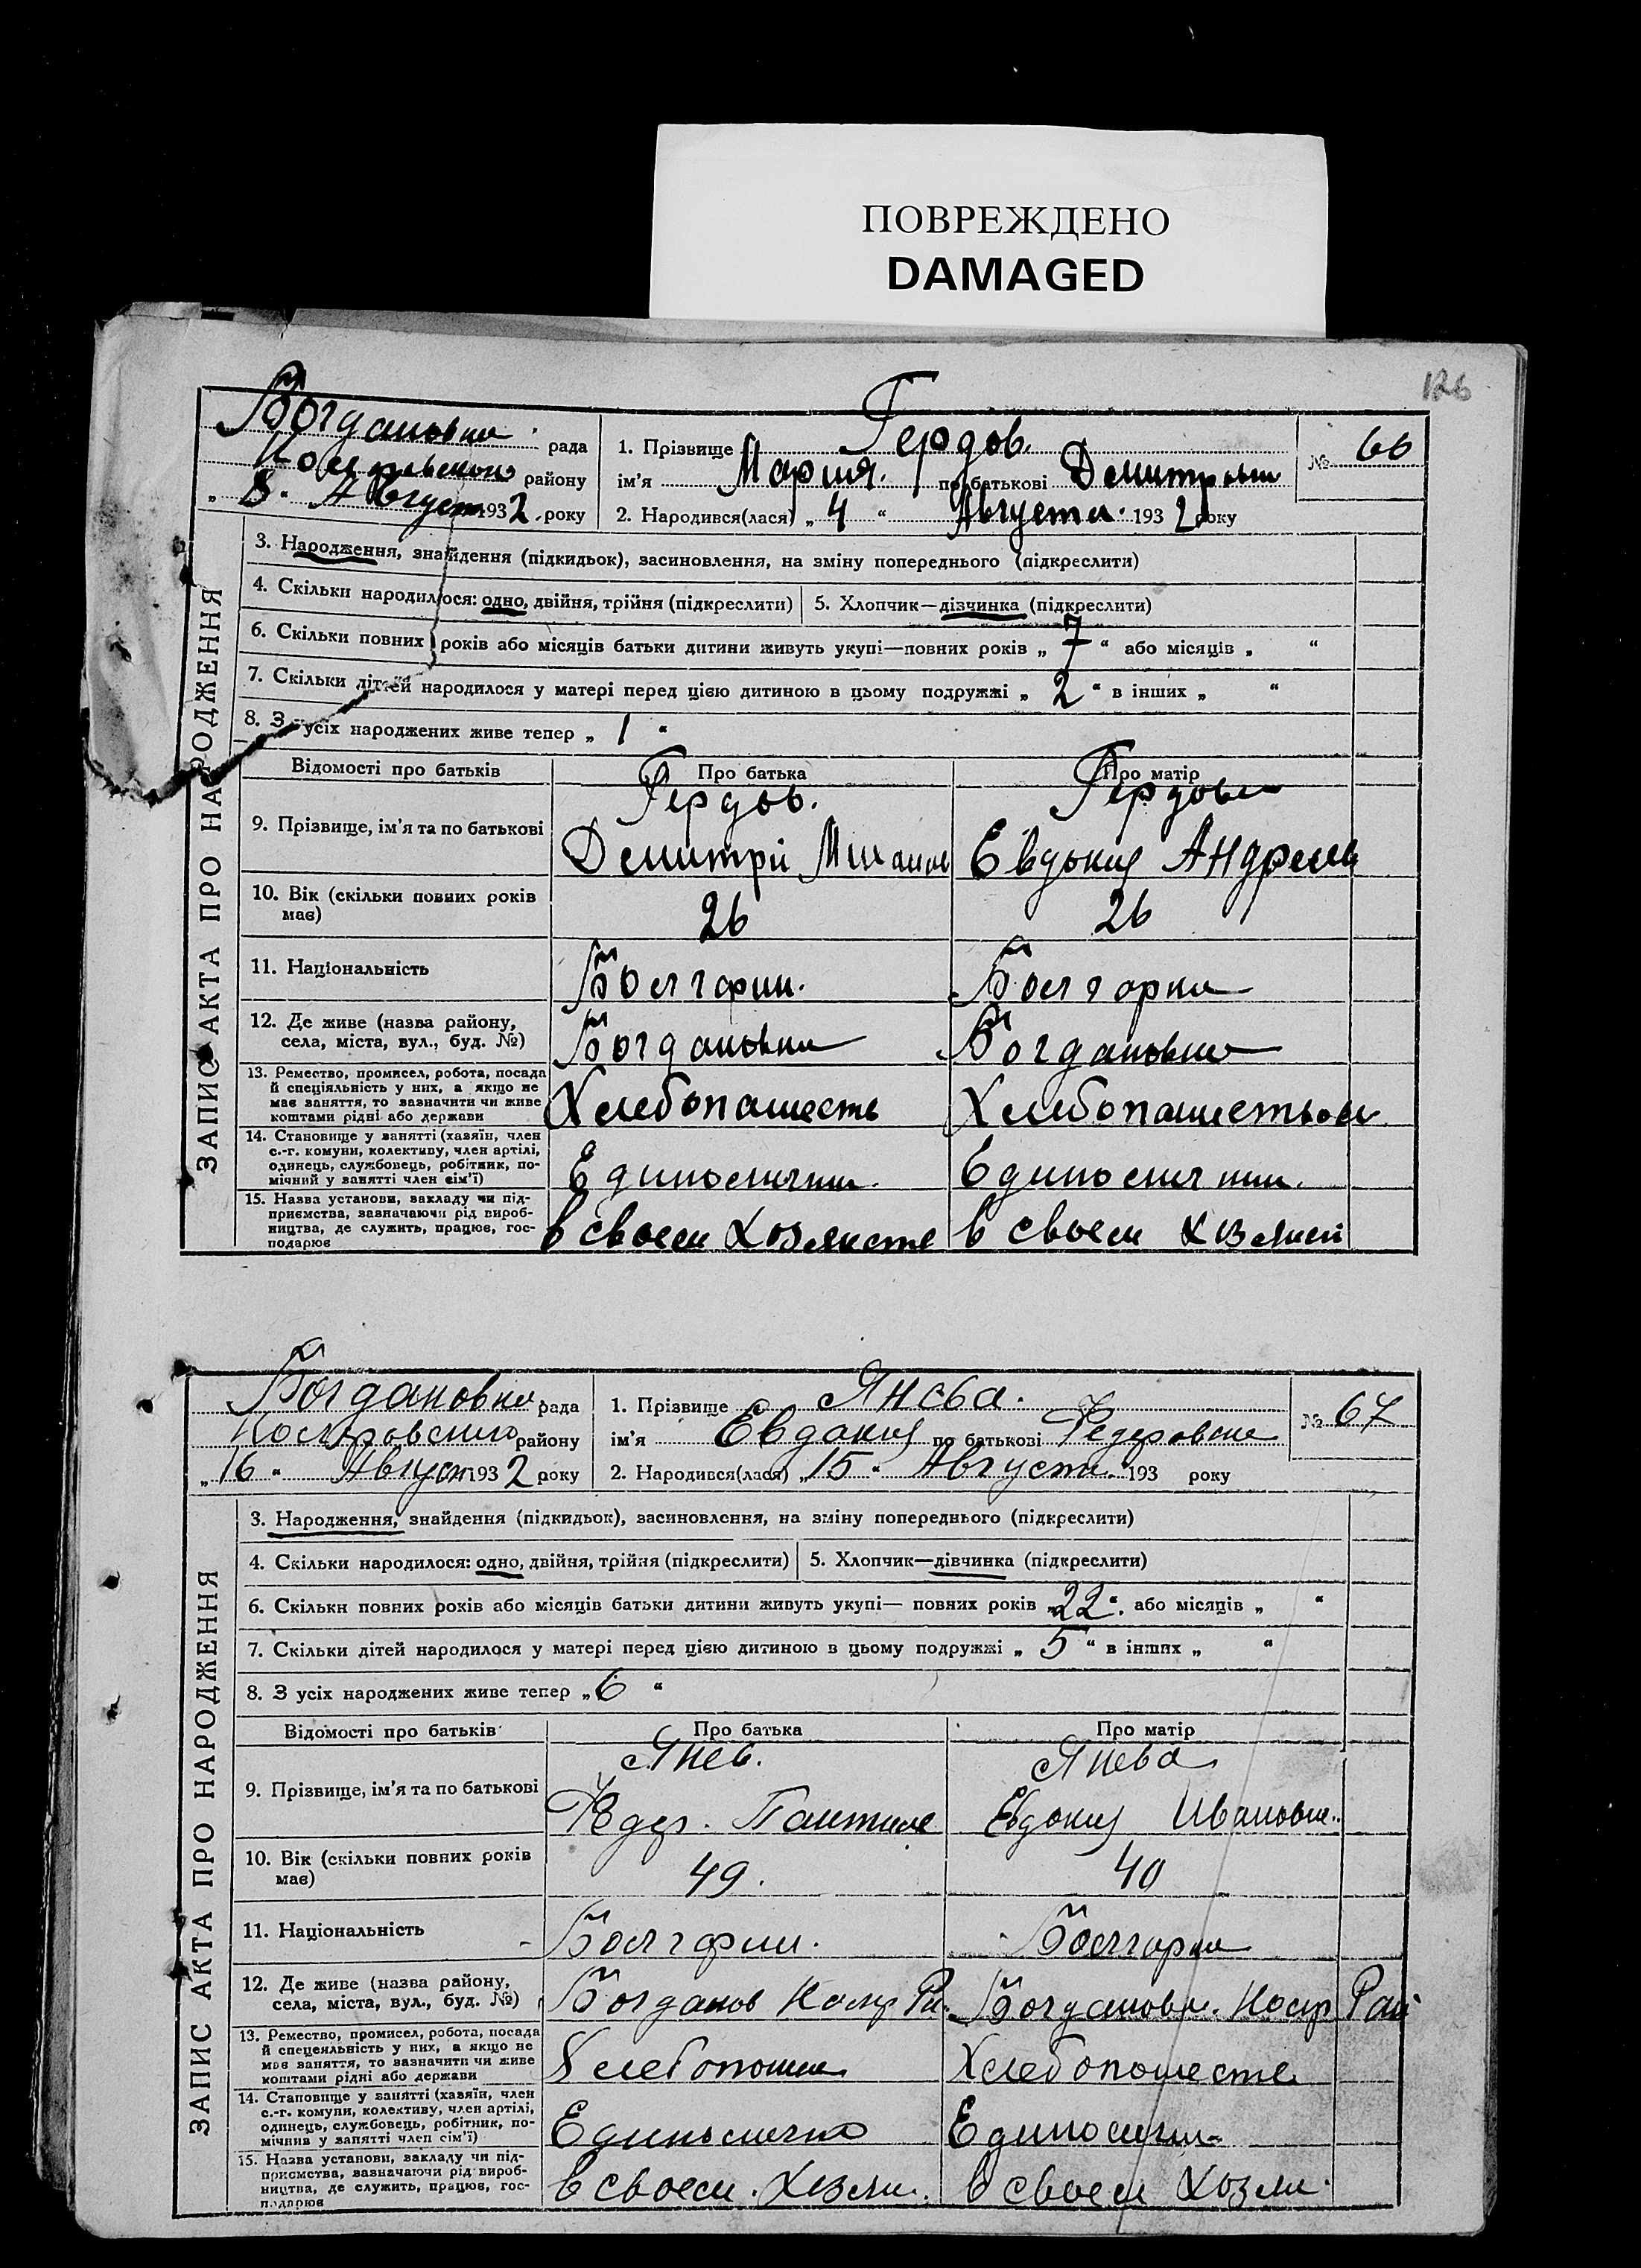 ПОВРЕЖДЕНО
DAMAGED
126
Богдановка рада
району
„ 8 " Август 1932 року
1. Прізвище Гердов.
ім'я Мария. по батькові Демитровна
№ 66
2. Народився(лася) „ 4 " Августа 1932 року
ЗАПИС АКТА ПРО НАРОДЖЕННЯ
3. Народження, знайдення (підкидьок), засиновлення, на зміну попереднього (підкреслити)
4. Скільки народилося: одно, двійня, трійня (підкреслити)
5. Хлопчик—дівчинка (підкреслити)
6. Скільки повних років або місяців батьки дитини живуть укупі—повних років „ 7 " або місяців „ "
7. Скільки дітей народилося у матері перед цією дитиною в цьому подружжі „ 2 " в інших „ "
8. З усіх народжених живе тепер „ 1 "
Відомості про батьків
Про батька
Про матір
9. Прізвище, ім'я та по батькові
Гердов.
Демитри
Гердова
Евдокия Андреев
10. Вік (скільки повних років має)
26
26
11. Національність
Болгарин.
Болгарка
12. Де живе (назва району,
села, міста, вул., буд. №)
Богдановка
Богдановка
13. Ремество, промисел, робота, посада
й спеціяльність у них, а якщо не
має заняття, то зазначити чи живе
коштами рідні або держави
Хлебопашесть
14. Становище у занятті (хазяїн, член
с.-г. комуни, колективу, член артілі,
одинець, службовець, робітник, по-
мічний у занятті член сім'ї)
15. Назва установи, закладу чи під-
приємства, зазначаючи рід вироб-
ництва, де служить, працює, гос-
подарює
в своем
в своем
Богдановка рада
району
„ 16 " Август 1932 року
1. Прізвище Янева.
ім'я Евдокия по батькові Федеровна
№ 67
2. Народився(лася) „ 15 " Августа 193 року
ЗАПИС АКТА ПРО НАРОДЖЕННЯ
3. Народження, знайдення (підкидьок), засиновлення, на зміну попереднього (підкреслити)
4. Скільки народилося: одно, двійня, трійня (підкреслити)
5. Хлопчик—дівчинка (підкреслити)
6. Скільки повних років або місяців батьки дитини живуть укупі— повних років „ 22 " або місяців „ "
7. Скільки дітей народилося у матері перед цією дитиною в цьому подружжі „ 5 " в інших „ "
8. З усіх народжених живе тепер „ 6 "
Відомості про батьків
Про батька
Про матір
9. Прізвище, ім'я та по батькові
Янев.
Янева
Евдокия Ивановна
10. Вік (скільки повних років має)
49.
40
11. Національність
Болгарин.
Болгарка
12. Де живе (назва району,
села, міста, вул., буд. №)
Богданов
Богдановка
13. Ремество, промисел, робота, посада
й спецеяльність у них, а якщо не
має заняття, то зазначити чи живе
коштами рідні або держави
14. Становище у занятті (хазяїн, член
с.-г. комуни, колективу, член артілі,
одинець, службовець, робітник, по-
мічний у занятті член сім'ї)
15. Назва установи, закладу чи під-
приємства, зазначаючи рід вироб-
ництва, де служить, працює, гос-
подарює
в своем
в своем